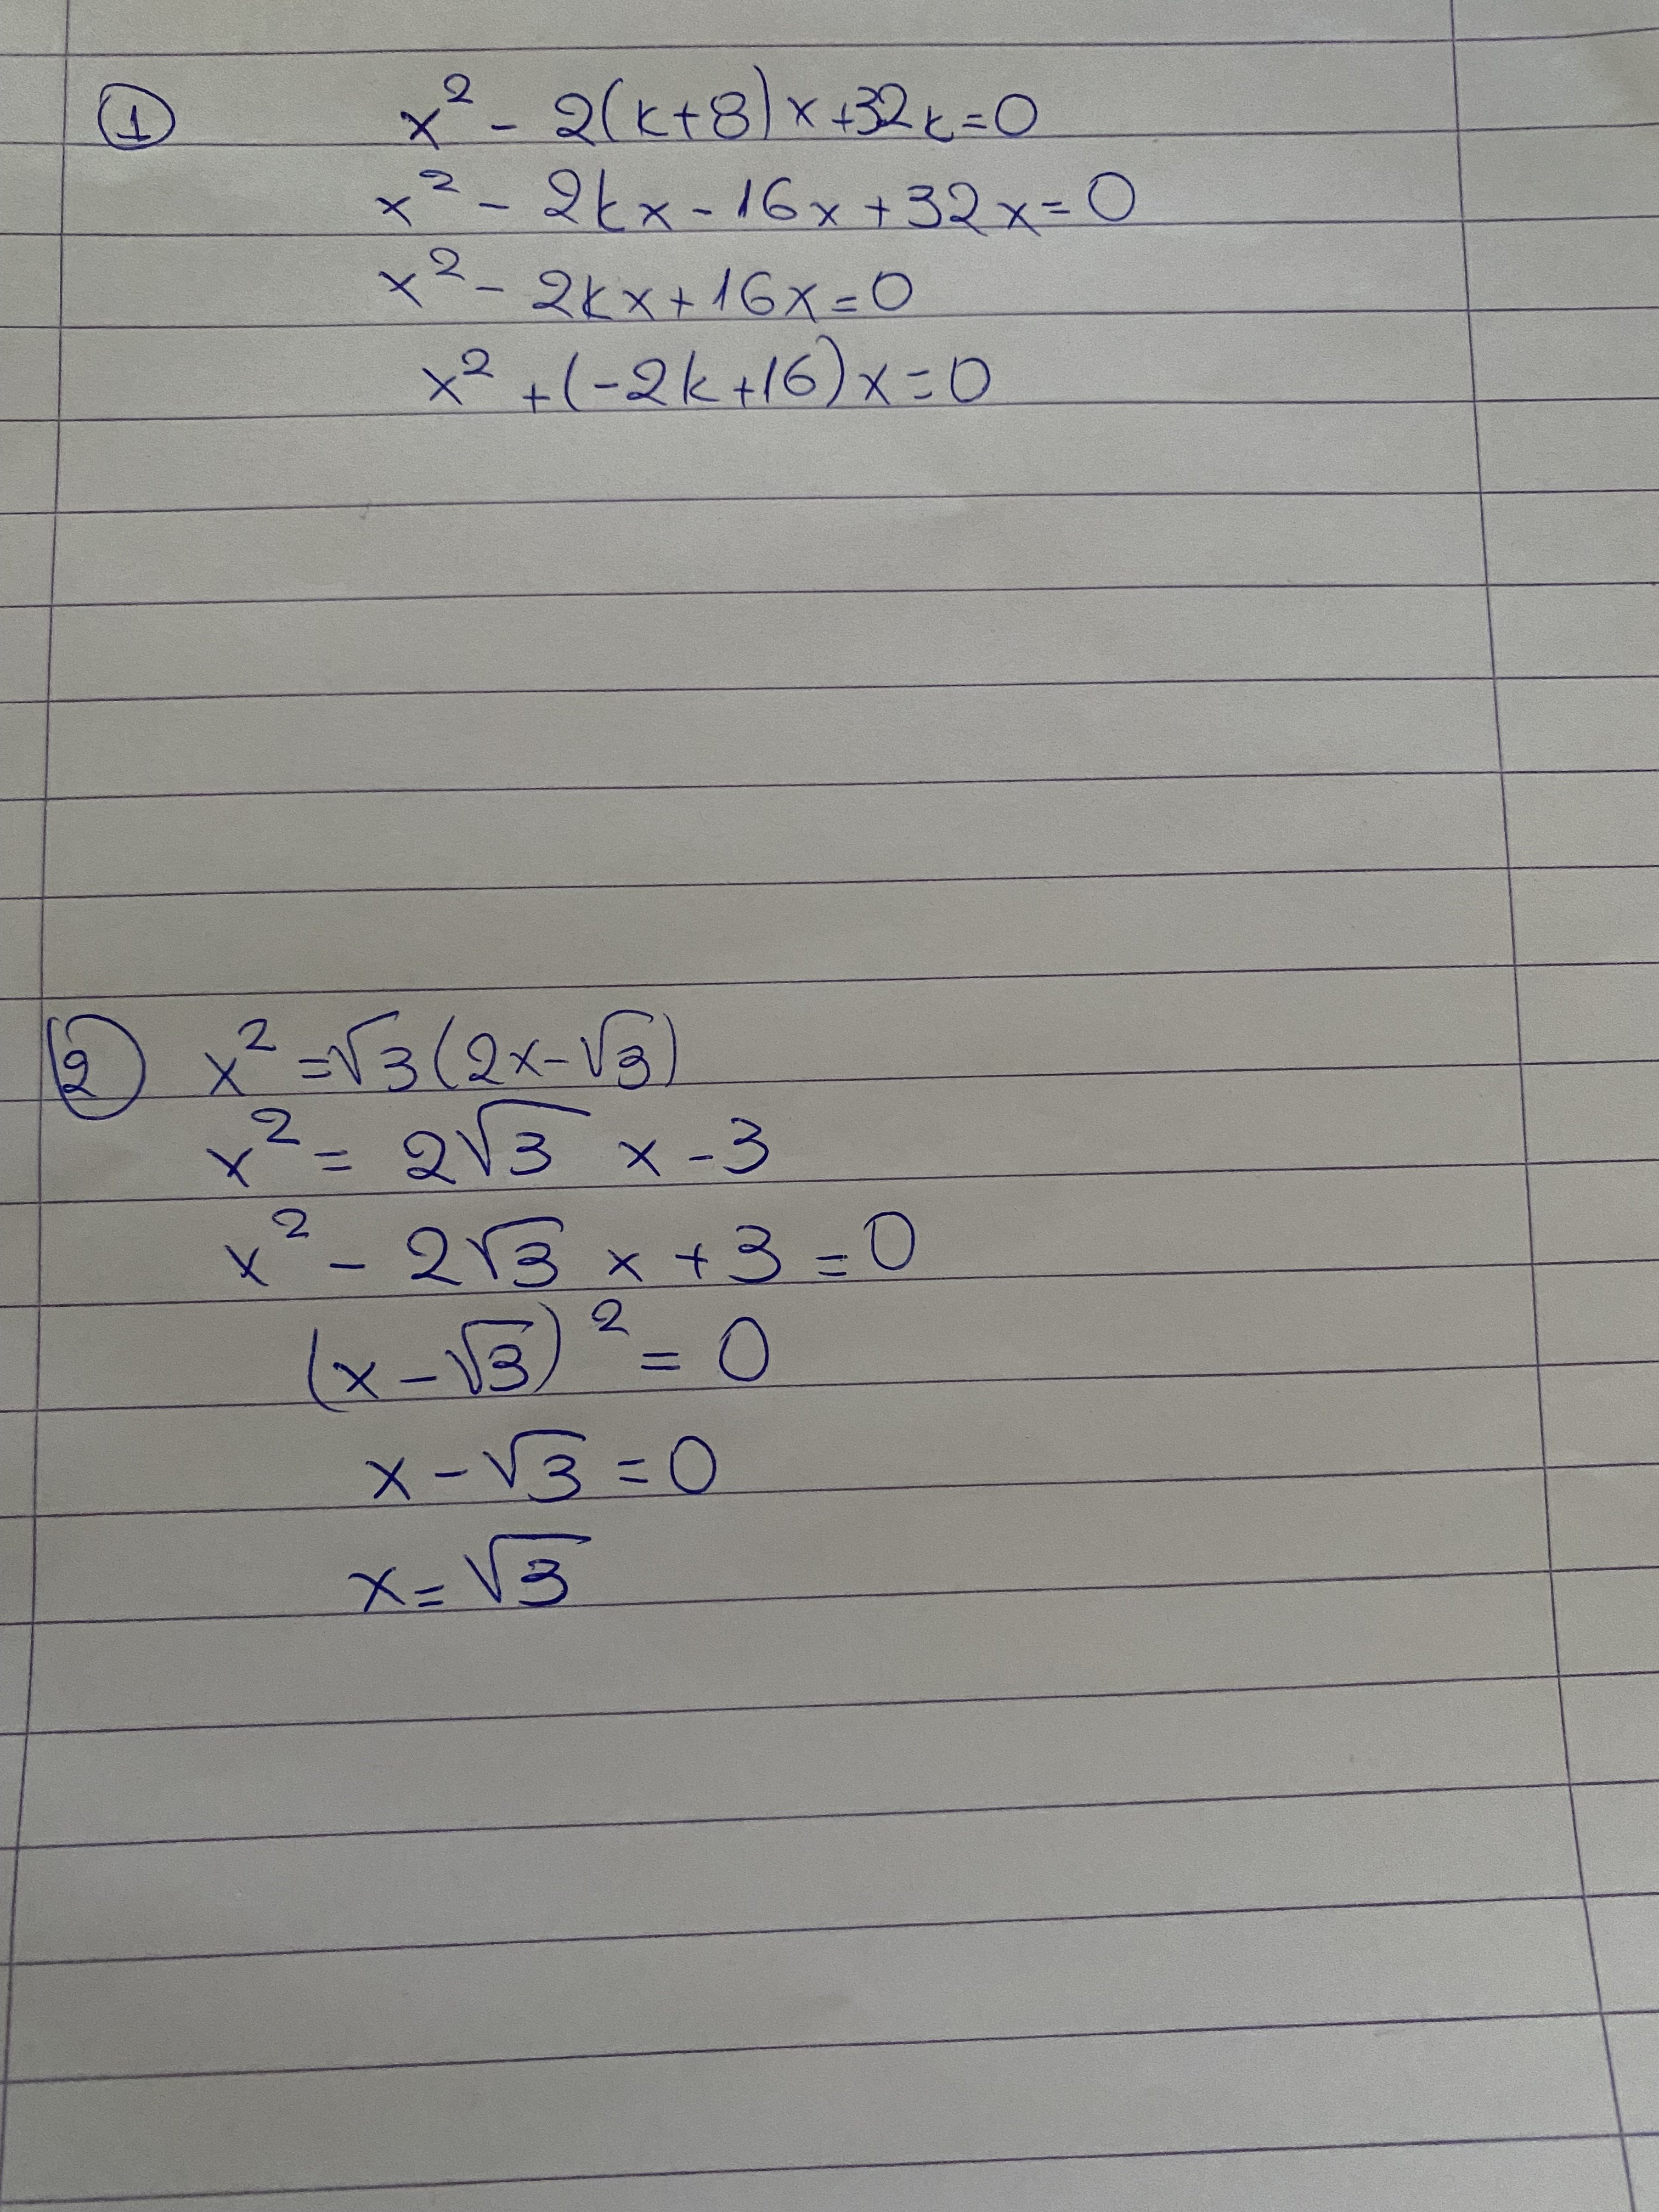 ① x² - 2(k+8)x+32k=0
x² - 2kx - 16x + 32x = 0
x² - 2kx + 16x = 0
x² + (-2k+16)x = 0
② x² = √3(2x-√3)
x² = 2√3 x - 3
x² - 2√3 x + 3 = 0
(x - √3)² = 0
x - √3 = 0
x = √3